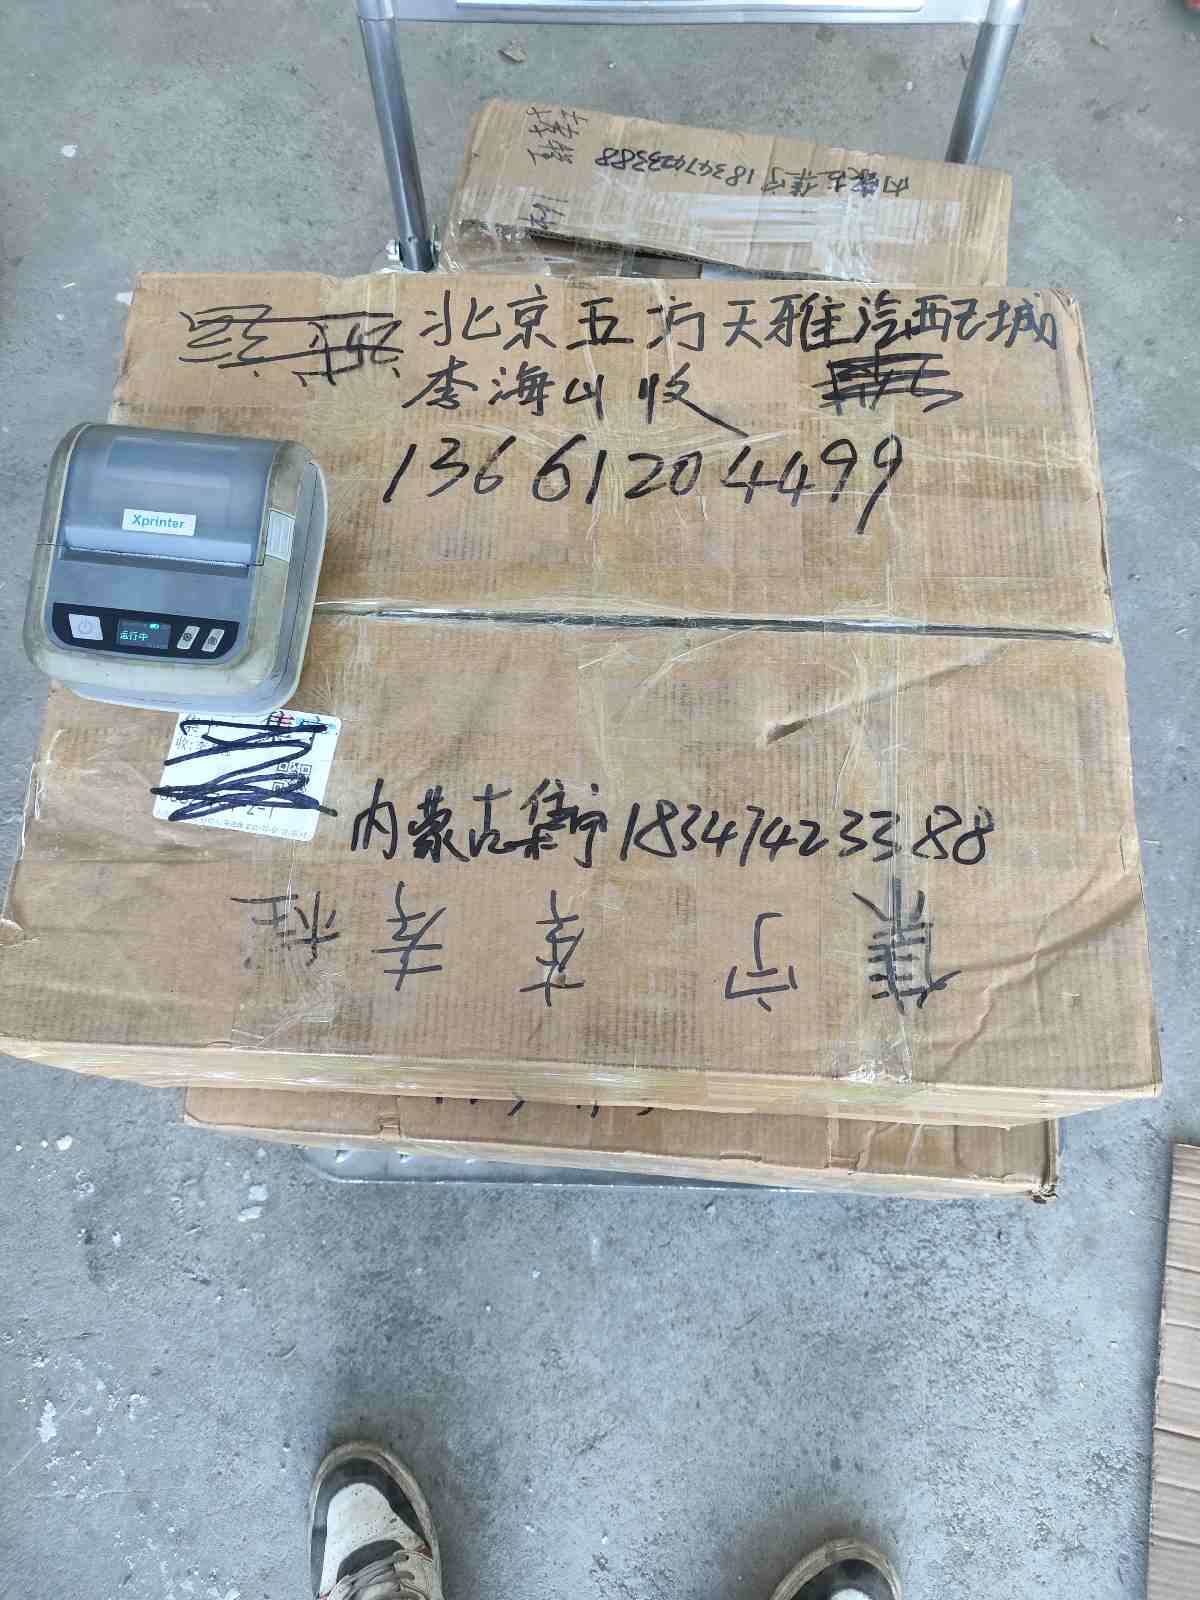 内蒙古集宁18347423388
北京五方天雅汽配城
李海山收
13661204499
Xprinter
运行中
收:李
内蒙古集宁18347423388
集宁李孝程